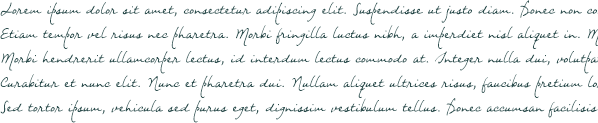 Lorem ipsum dolor sit amet, consectetur adipiscing elit. Suspendisse ut justo diam. Donec non co
Etiam tempor vel risus nec pharetra. Morbi fringilla luctus nibh, a imperdiet nisl aliquet in. M
Morbi hendrerit ullamcorper lectus, id interdum lectus commodo at. Integer nulla dui, volutpa
Curabitur et nunc elit. Nunc et pharetra dui. Nullam aliquet ultrices risus, faucibus pretium lo
Sed tortor ipsum, vehicula sed purus eget, dignissim vestibulum tellus. Donec accumsan facilisis